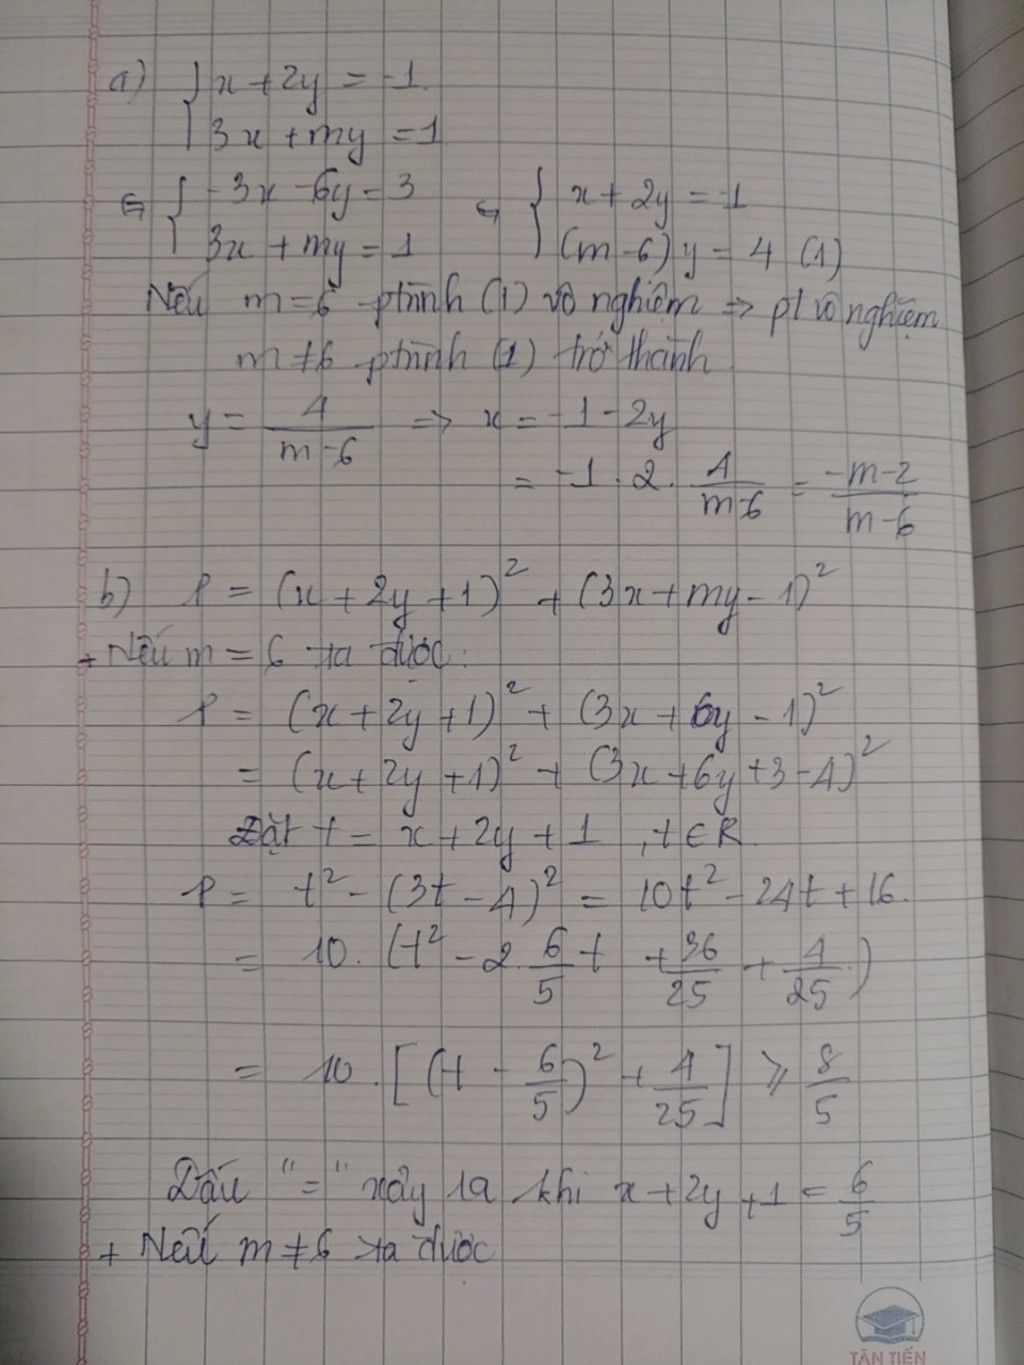 a) { x + 2y = -1
3x + my = 1
⇔ { -3x - 6y = 3
3x + my = 1
⇔ { x + 2y = -1
(m - 6) y = 4 (1)
Nếu m = 6 ptrình (1) vô nghiệm ⇒ pt vô nghiệm
m ≠ 6 ptrình (1) trở thành
y = 4/(m - 6) ⇒ x = -1 - 2y
= -1 . 2 . 4/(m-6) = (-m-2)/(m-6)
b) P = (x + 2y + 1)² + (3x + my - 1)²
+ Nếu m = 6 ta được:
P = (x + 2y + 1)² + (3x + 6y - 1)²
= (x + 2y + 1)² + (3x + 6y + 3 - 4)²
Đặt t = x + 2y + 1 , t ∈ R
P = t² - (3t - 4)² = 10t² - 24t + 16.
= 10. (t² - 2. 6/5 t + 36/25 + 4/25)
= 10. [(t - 6/5)² + 4/25] ⩾ 8/5
Dấu "=" xảy ra khi x + 2y + 1 = 6/5
+ Nếu m ≠ 6 ta được
TÂN TIẾN